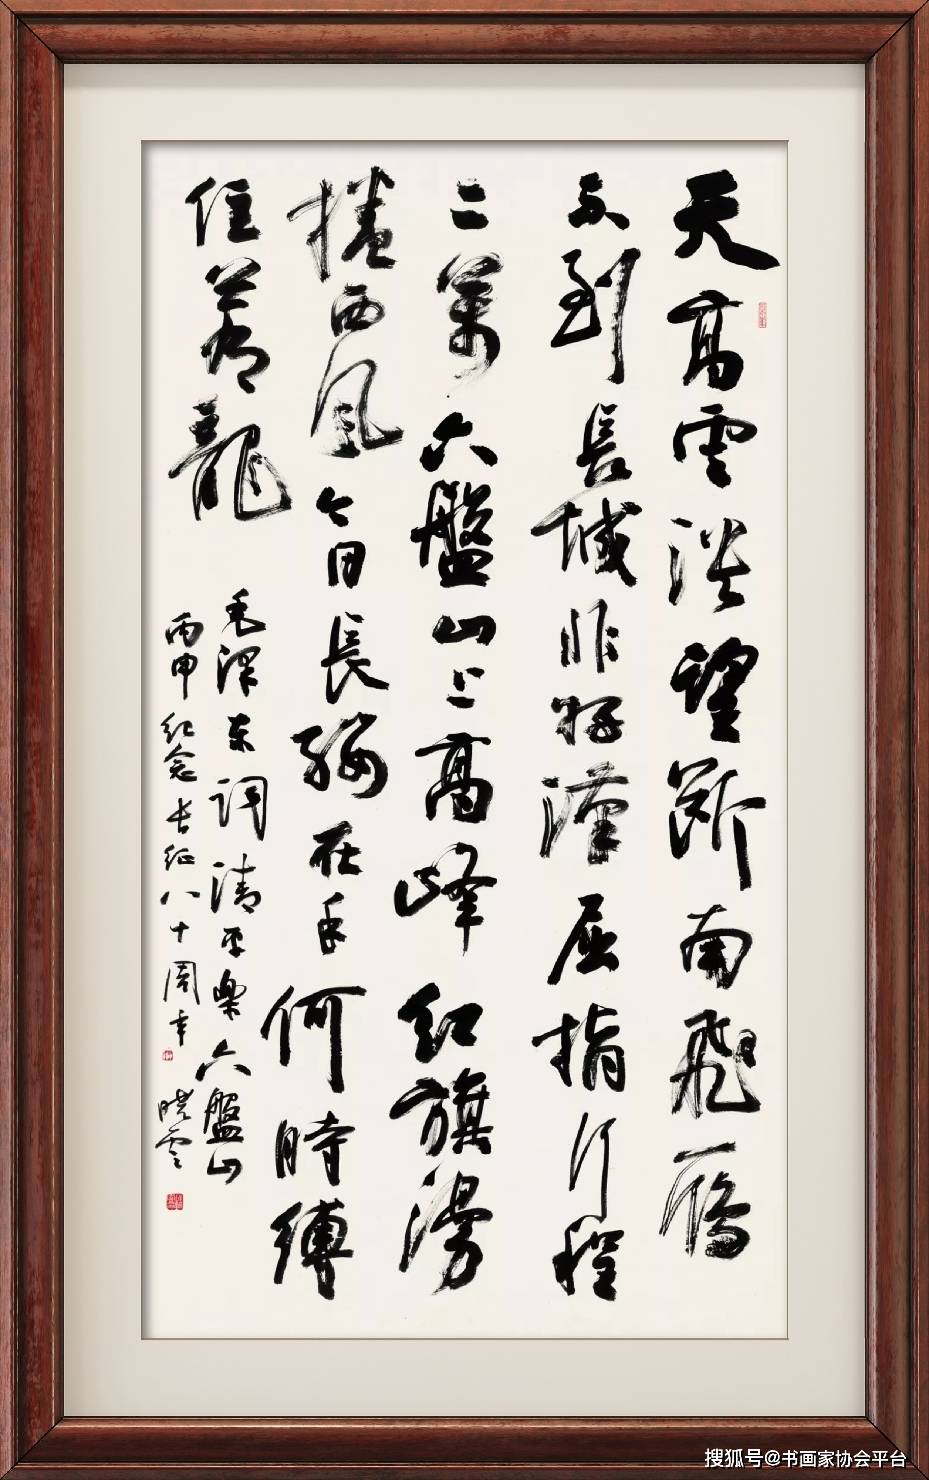 天高雲淡望斷南飛雁
不到長城非好漢屈指行程
二萬六盤山上高峰紅旗漫
捲西風今日長纓在手何時縛
住蒼龍
毛澤東詞清平樂六盤山
丙申紀念长征八十周年 晓雲
搜狐号@书画家协会平台